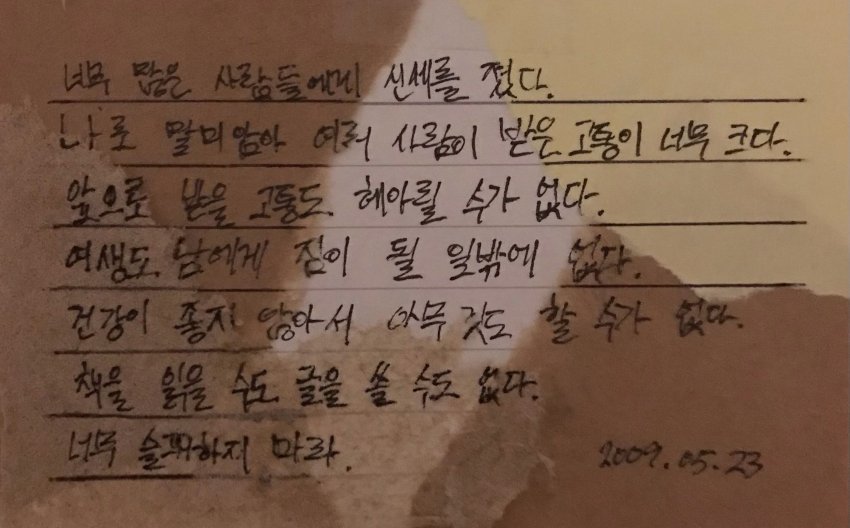 너무 많은 사람들에게 신세를 졌다.
나로 말미암아 여러 사람이 받은 고통이 너무 크다.
앞으로 받을 고통도 헤아릴 수가 없다.
여생도 남에게 짐이 될 일밖에 없다.
건강이 좋지 않아서 아무 것도 할 수가 없다.
책을 읽을 수도 글을 쓸 수도 없다.
너무 슬퍼하지 마라.
2009.05.23